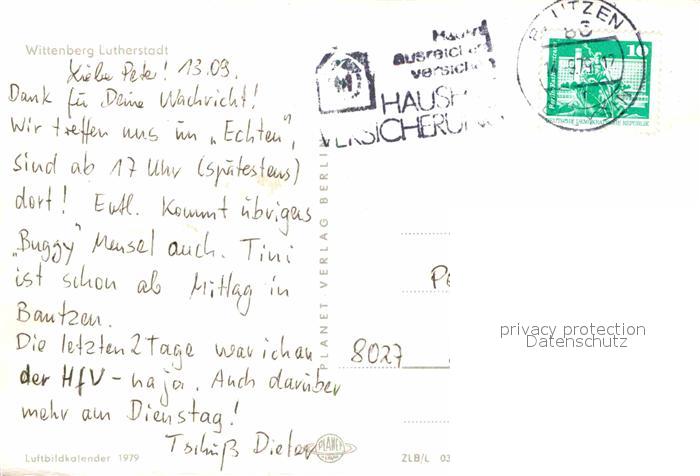 Wittenberg Lutherstadt
Liebe Pete! 13.09.
Dank für Deine Nachricht!
Wir treffen uns im „Echten",
sind ab 17 Uhr (spätestens)
dort! Evtl. kommt übrigens
„Buggy" Mensel auch. Tini
ist schon ab Mittag in
Bautzen.
Die letzten 2 Tage war ich an
der HfV - na ja. Auch darüber
mehr am Dienstag!
Tschüß Dieter
Luftbildkalender 1979
PLANET
ZLB/L 03
PLANET VERLAG BERLIN
ausreichen
versiche
HAUS
VERSICHERUN
BAUTZEN
86
9.79-17
10
DEUTSCHE DEMOKRATISCHE REPUBLIK
Pe
8027
privacy protection
Datenschutz